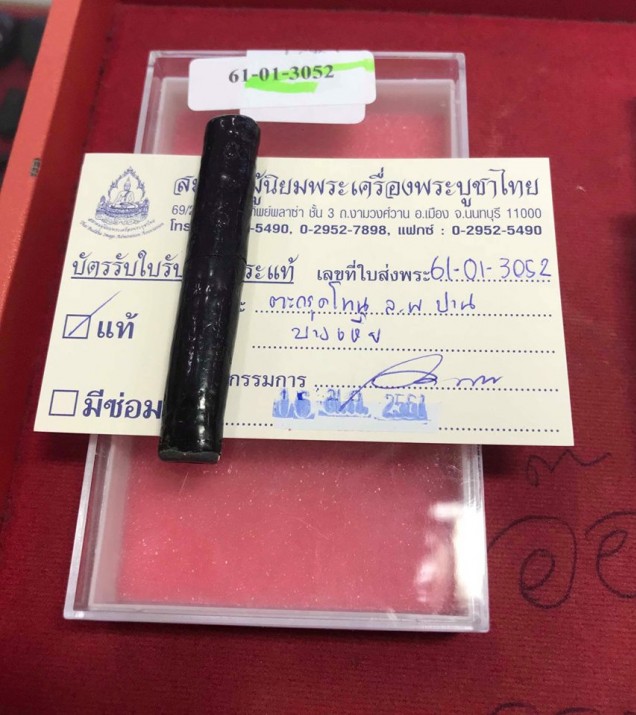 61-01-3052
ผู้นิยมพระเครื่องพระบูชาไทย
69/ พย์พลาซ่า ชั้น 3 ถ.งามวงศ์วาน อ.เมือง จ.นนทบุรี 11000
โทร -5490, 0-2952-7898, แฟกซ์ : 0-2952-5490
บัตรรับใบรับ ระแท้ เลขที่ใบส่งพระ 61-01-3052
ตะกรุดโทน ล.พ ปาน
แท้
บางเหี้ย
กรรมการ
มีซ่อม
2561